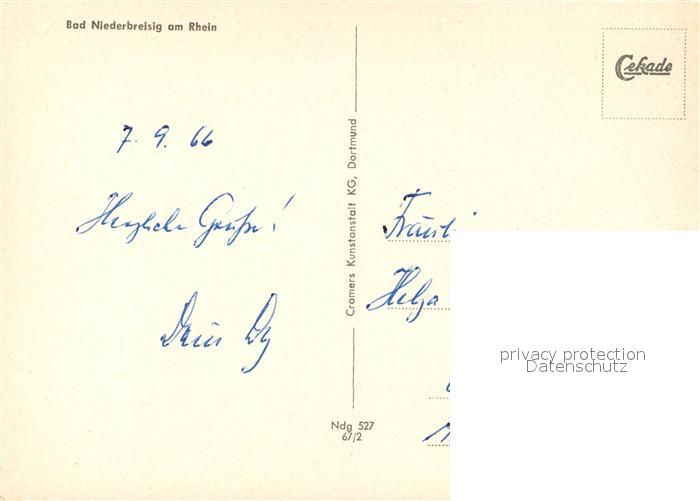 Bad Niederbreisig am Rhein
Cekade
7. 9. 66
Herzliche Grüße!
Dein
Cramers Kunstanstalt KG, Dortmund
Helga
privacy protection
Datenschutz
Ndg 527
67/2